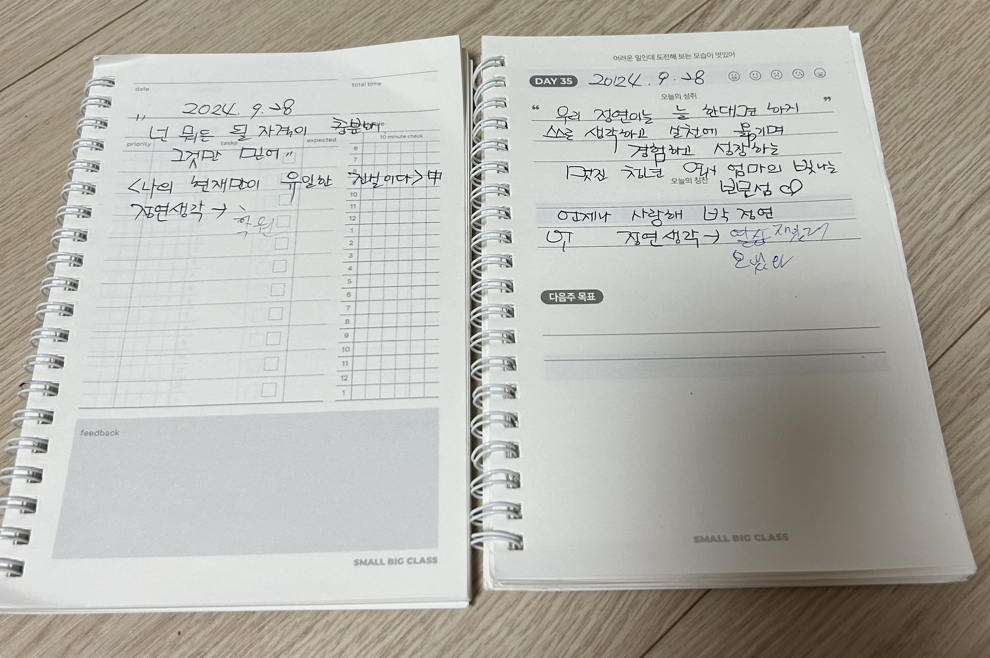 date
total time
" 2024. 9. 28
넌 뭐든 될 자격이 충분해.
priority
tasks
expected
10 minute check
그것만 믿어"
6
7
<나의 현재만이 유일한 진실이다> 中
정연생각 →
학원
10
11
12
1
2
3
4
5
6
7
8
9
10
11
12
1
feedback
SMALL BIG CLASS
어려운 일인데 도전해 보는 모습이 멋있어
DAY 35 2024. 9. 28
오늘의 성취
" 우리 정연이는 늘 한대로 하지 "
스스로 생각하고 실천에 옮기면
경험하고 성장하는
멋진 엄마의 빛나는
오늘의 칭찬
보물섬
언제나 사랑해 박 정연
정연생각 →
다음주 목표
SMALL BIG CLASS